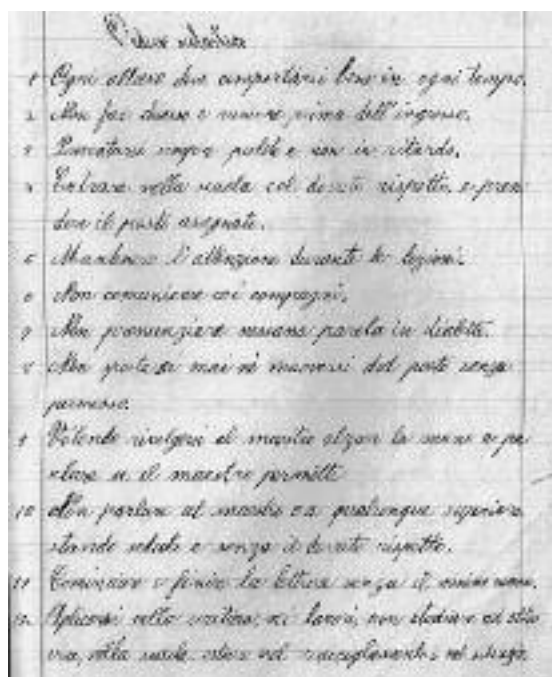 Ogni allievo deve comportarsi bene in ogni tempo.
2 Non far chiasso e rumore prima dell'ingresso.
3 Presentarsi sempre puliti e non in ritardo.
4 Entrare nella scuola col dovuto rispetto e pren
dere il posto assegnato.
5 Mantenere l'attenzione durante le lezioni.
6 Non comunicare coi compagni.
7 Non pronunziare nessuna parola in dialetto.
8 Non mai nè muoversi dal posto senza
permesso.
9 Volendo rivolgersi al maestro alzar la mano e pa
rlare se il maestro permette
10 Non parlare al maestro o a qualunque superiore
stando seduti e senza il dovuto rispetto.
11 Cominciare e finire la lettura senza il
12 nella scrittura, nei lavori, non studiare ad alta
voce, nella scuola